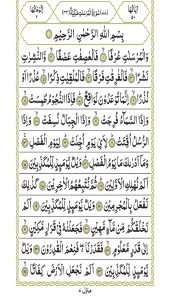 بِسْمِ اللهِ الرَّحْمٰنِ الرَّحِيْمِ
وَالْمُرْسَلٰتِ عُرْفًا ۙ فَالْعٰصِفٰتِ عَصْفًا ۙ وَّالنّٰشِرٰتِ
نَشْرًا ۙ فَالْفٰرِقٰتِ فَرْقًا ۙ فَالْمُلْقِيٰتِ ذِكْرًا ۙ عُذْرًا اَوْ
نُذْرًا ۙ اِنَّمَا تُوْعَدُوْنَ لَوَاقِعٌ ؕ فَاِذَا النُّجُوْمُ طُمِسَتْ
وَاِذَا السَّمَآءُ فُرِجَتْ ۙ وَاِذَا الْجِبَالُ نُسِفَتْ ۙ وَاِذَا
الرُّسُلُ اُقِّتَتْ ؕ لِاَيِّ يَوْمٍ اُجِّلَتْ ؕ لِيَوْمِ الْفَصْلِ
وَمَآ اَدْرٰىكَ مَا يَوْمُ الْفَصْلِ ؕ وَيْلٌ يَّوْمَئِذٍ لِّلْمُكَذِّبِيْنَ
اَلَمْ نُهْلِكِ الْاَوَّلِيْنَ ؕ ثُمَّ نُتْبِعُهُمُ الْاٰخِرِيْنَ كَذٰلِكَ
نَفْعَلُ بِالْمُجْرِمِيْنَ وَيْلٌ يَّوْمَئِذٍ لِّلْمُكَذِّبِيْنَ اَلَمْ
نَخْلُقْكُّمْ مِّنْ مَّآءٍ مَّهِيْنٍ ۙ فَجَعَلْنٰهُ فِيْ قَرَارٍ مَّكِيْنٍ
اِلٰى قَدَرٍ مَّعْلُوْمٍ ۙ فَقَدَرْنَا ۖ فَنِعْمَ الْقٰدِرُوْنَ وَيْلٌ
يَّوْمَئِذٍ لِّلْمُكَذِّبِيْنَ اَلَمْ نَجْعَلِ الْاَرْضَ كِفَاتًا
منزل ٧